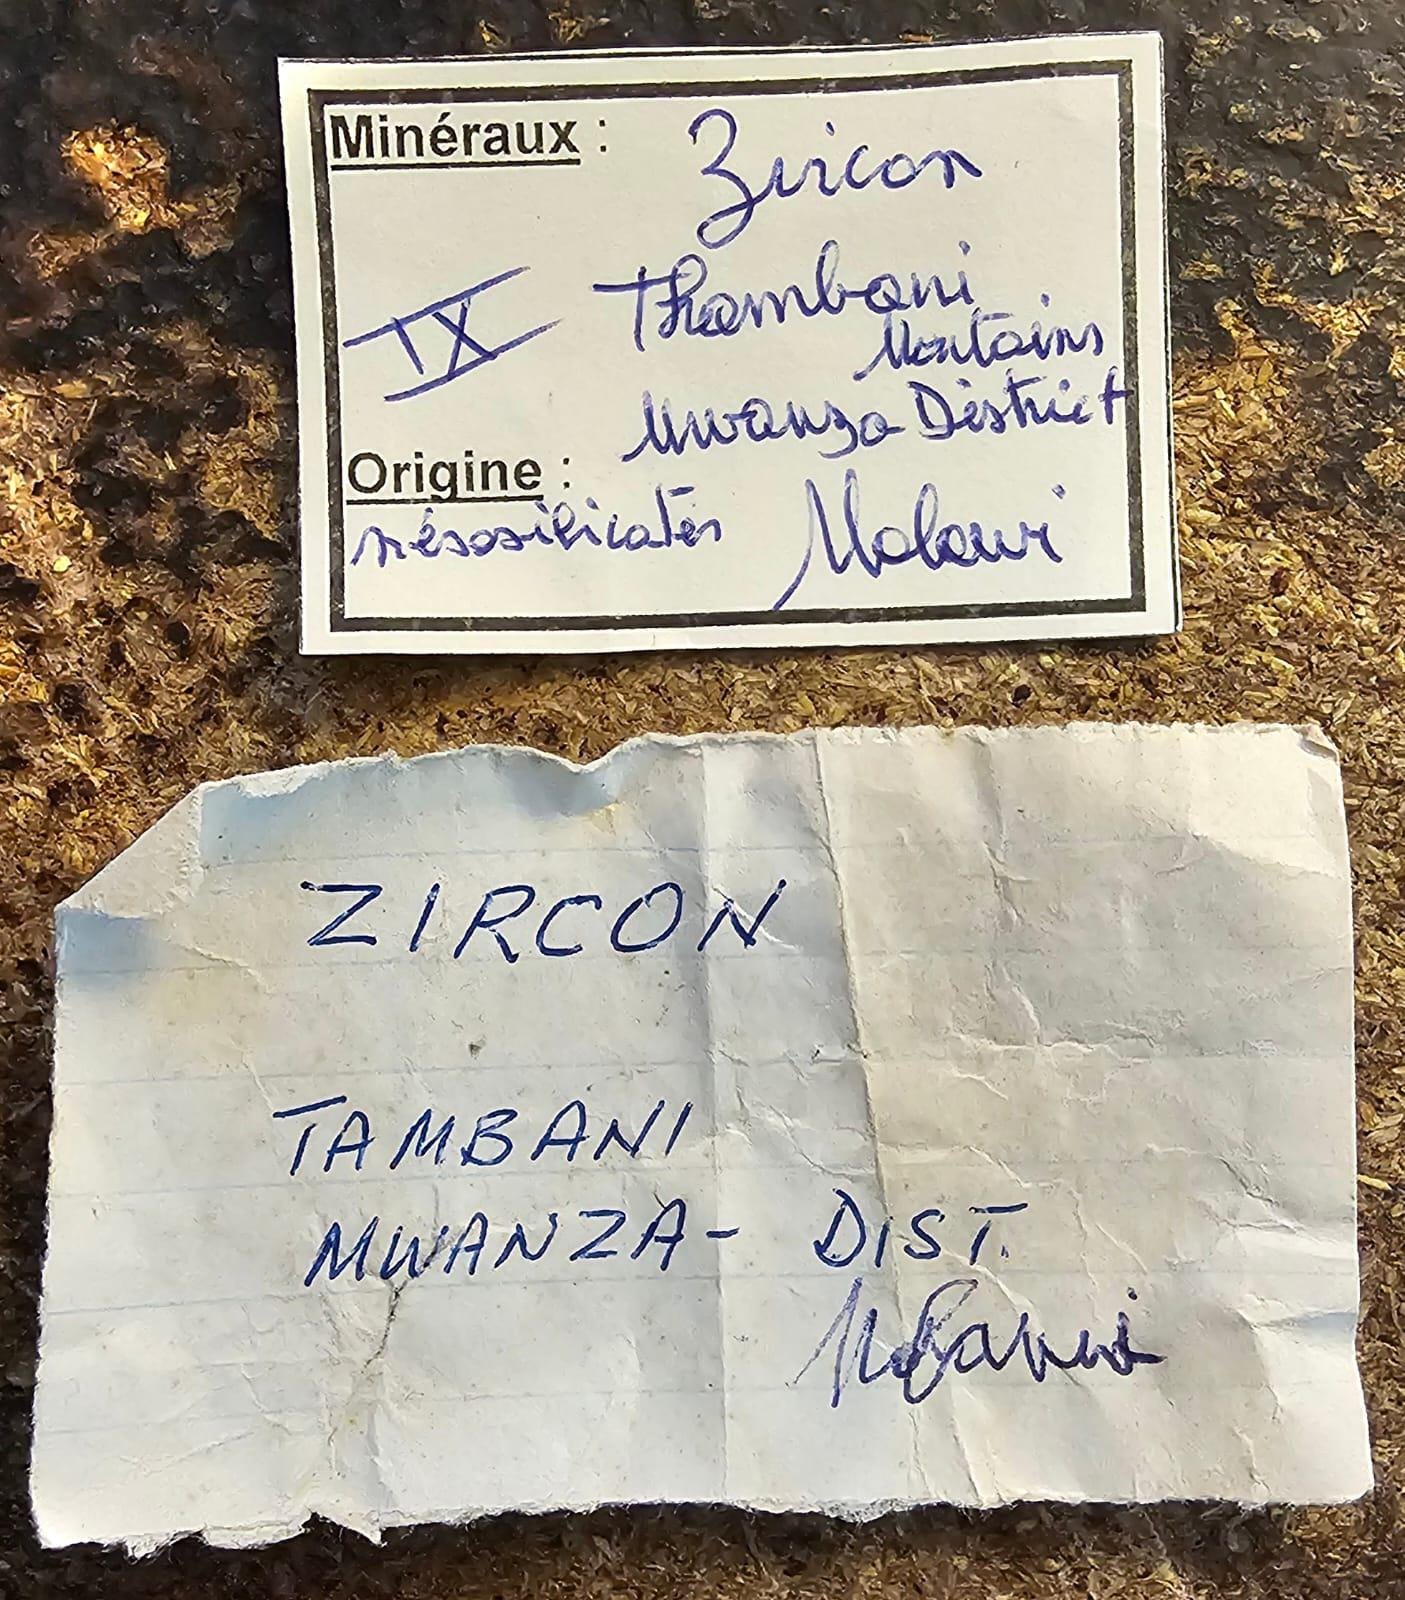 Minéraux : Zircon
IX Thambani
Montains
Mwanza District
Origine :
nésosilicates Malawi
ZIRCON
TAMBANI
MWANZA- DIST.
Malawi